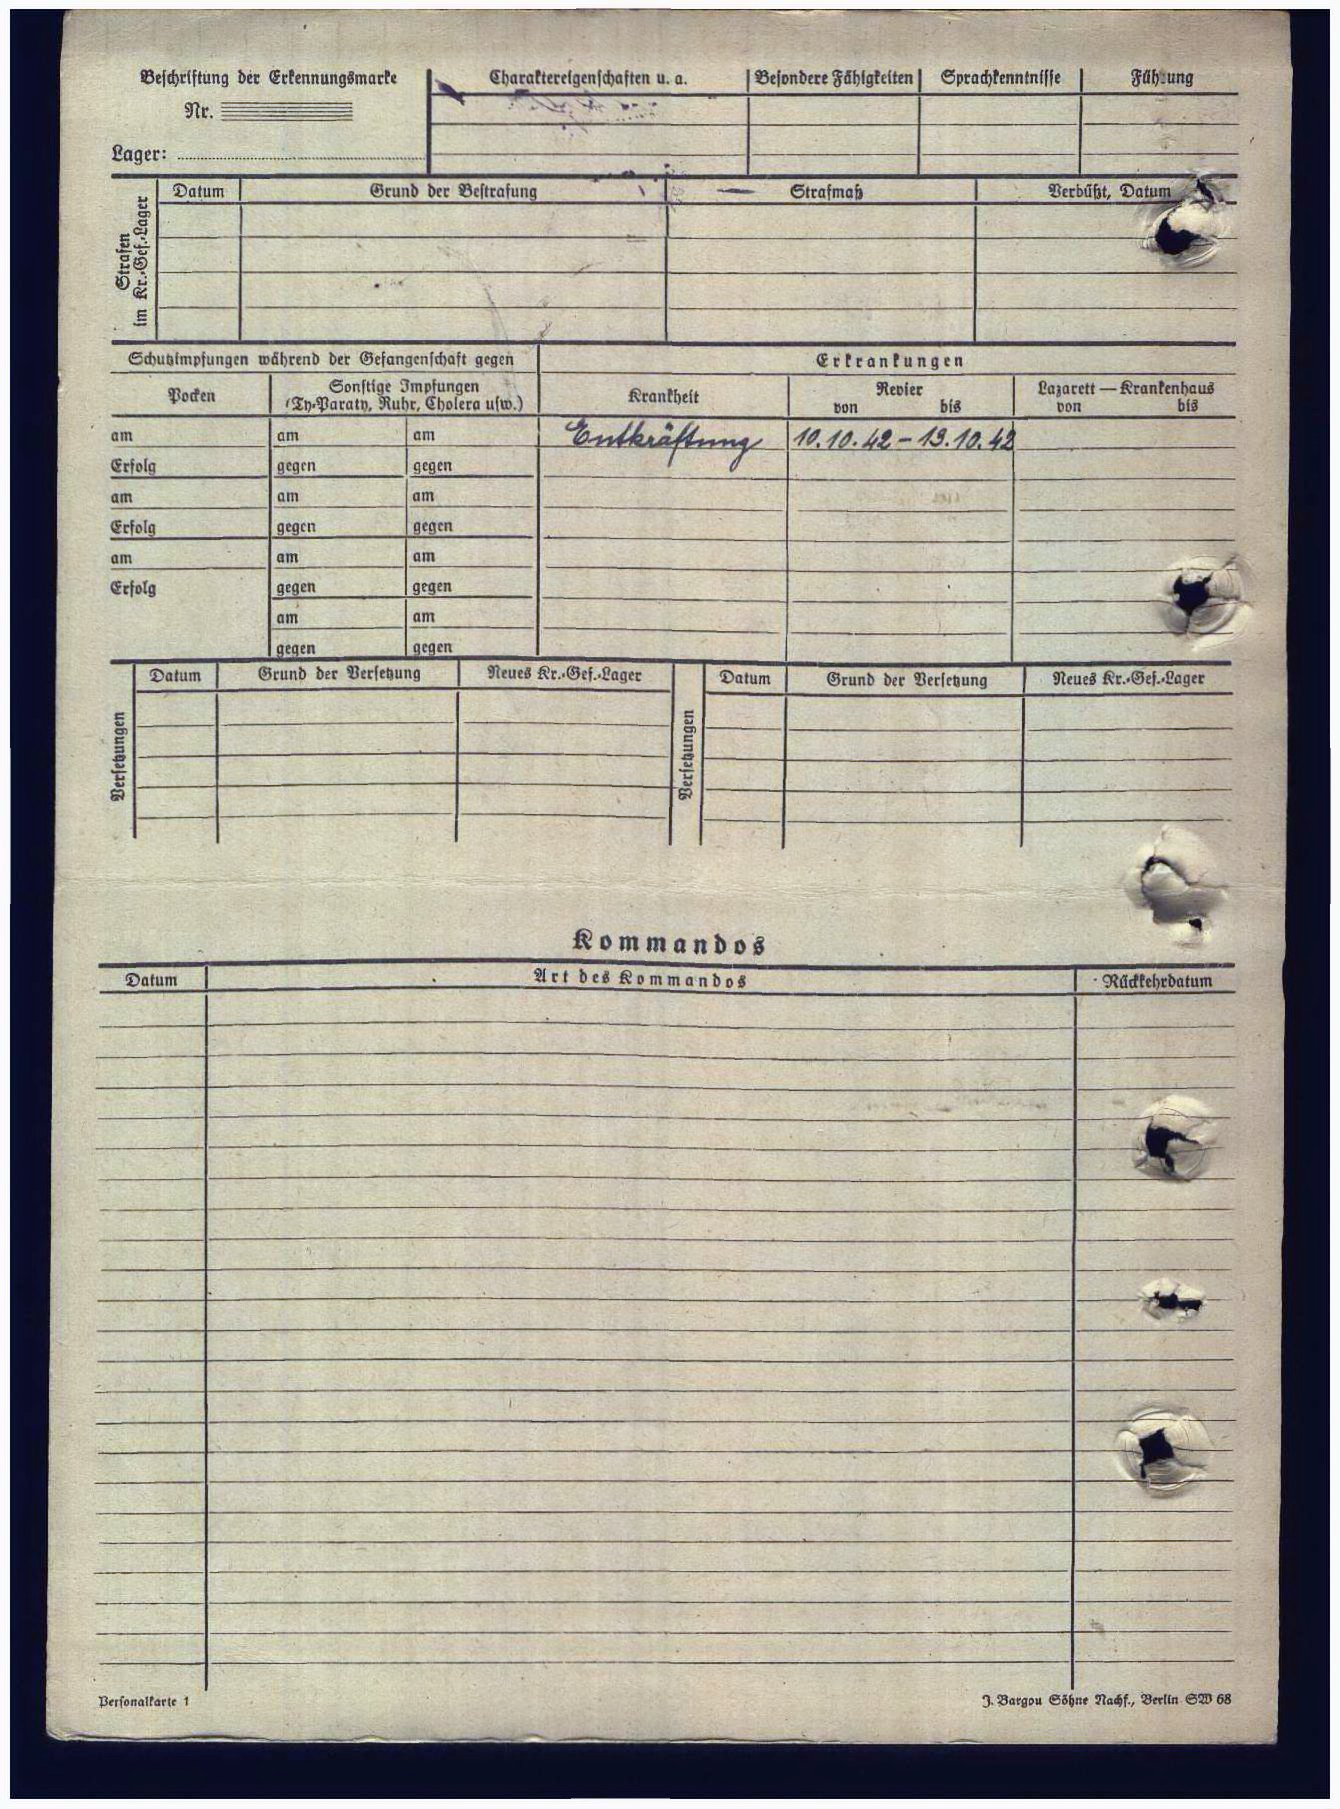 Beschriftung der Erkennungsmarke
Nr.
Lager:
Charaktereigenschaften u. a.
Besondere Fähigkeiten
Sprachkenntnisse
Führung
Strafen
im Kr.-Gef.-Lager
Datum
Grund der Bestrafung
Strafmaß
Verbüßt, Datum
Schutzimpfungen während der Gefangenschaft gegen
Erkrankungen
Pocken
Sonstige Impfungen
(Ty-Paraty, Ruhr, Cholera usw.)
Krankheit
Revier
von bis
Lazarett — Krankenhaus
von bis
am am am Entkräftung 10.10.42 – 13.10.42
Erfolg gegen gegen
am am am
Erfolg gegen gegen
am am am
Erfolg gegen gegen
am am
gegen gegen
Versetzungen
Datum Grund der Versetzung Neues Kr.-Gef.-Lager
Versetzungen
Datum Grund der Versetzung Neues Kr.-Gef.-Lager
Kommandos
Datum Art des Kommandos Rückkehrdatum
Personalkarte 1
J. Bargou Söhne Nachf., Berlin SW 68